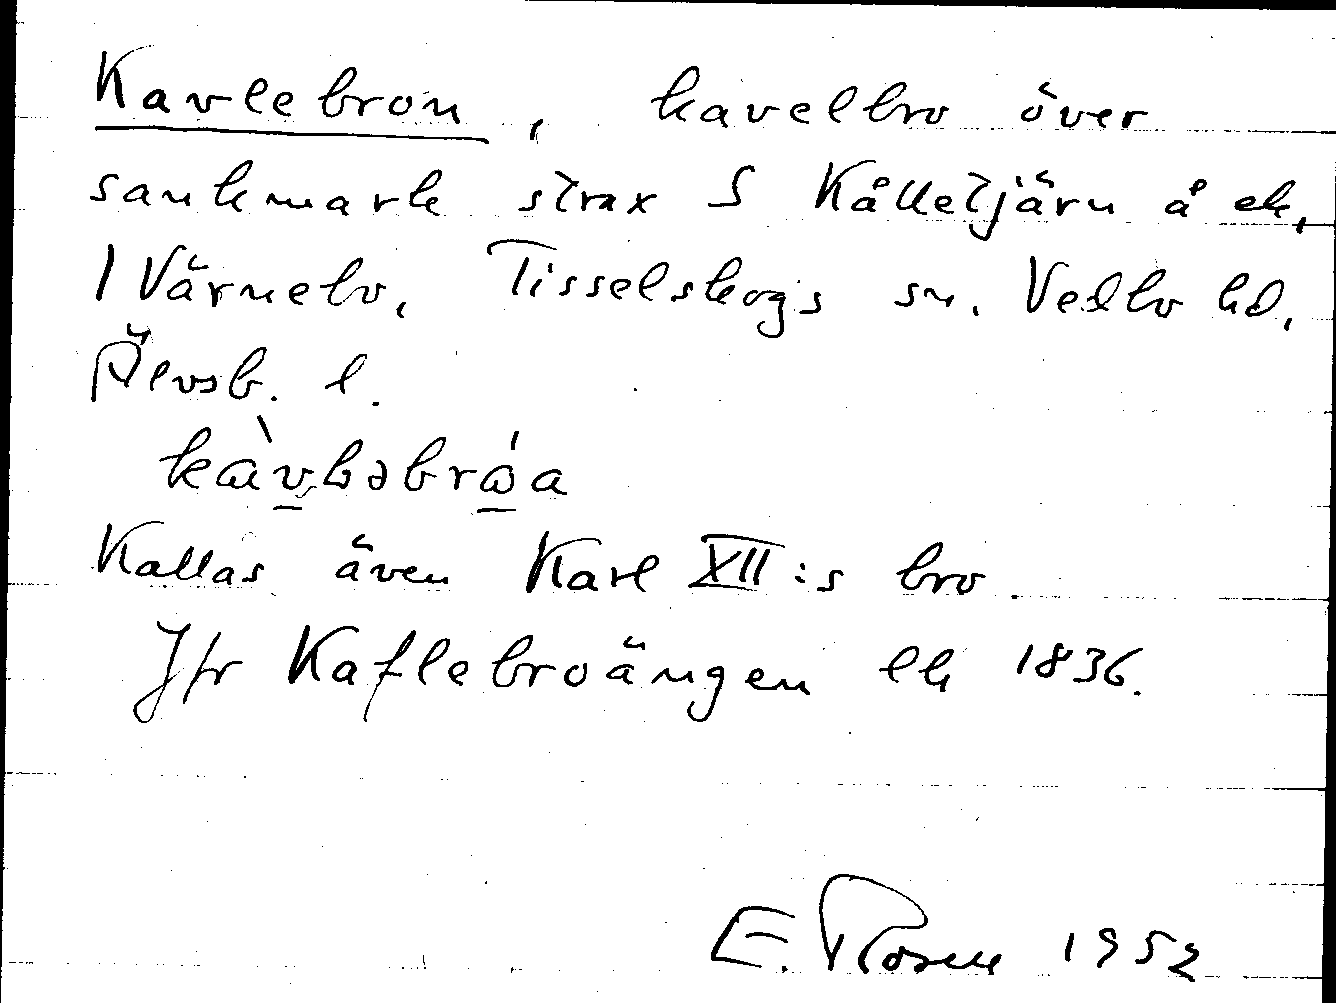 Kavlebron, kavelbro över
sankmark strax S Kålletjärn å ek.
1 Värnebo, Tisselskogs sn. Vedbo hd.
Älvsb. l.
kàvbəbróa
Kallas även Karl XII:s bro.
Jfr Kaflebroängen lk 1836.
E. Rosen 1952